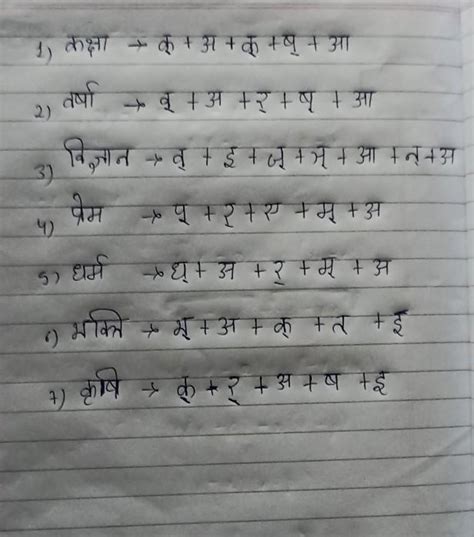 1) कक्षा → क् + अ + क् + ष् + आ
2) वर्षा → व् + अ + र् + ष् + आ
3) विज्ञान → व् + इ + ज् + ञ् + आ + न् + अ
4) प्रेम → प् + र् + ए + म् + अ
5) धर्म → ध् + अ + र् + म् + अ
6) भक्ति → भ् + अ + क् + त् + इ
7) कृषि → क् + र् + अ + ष + इ